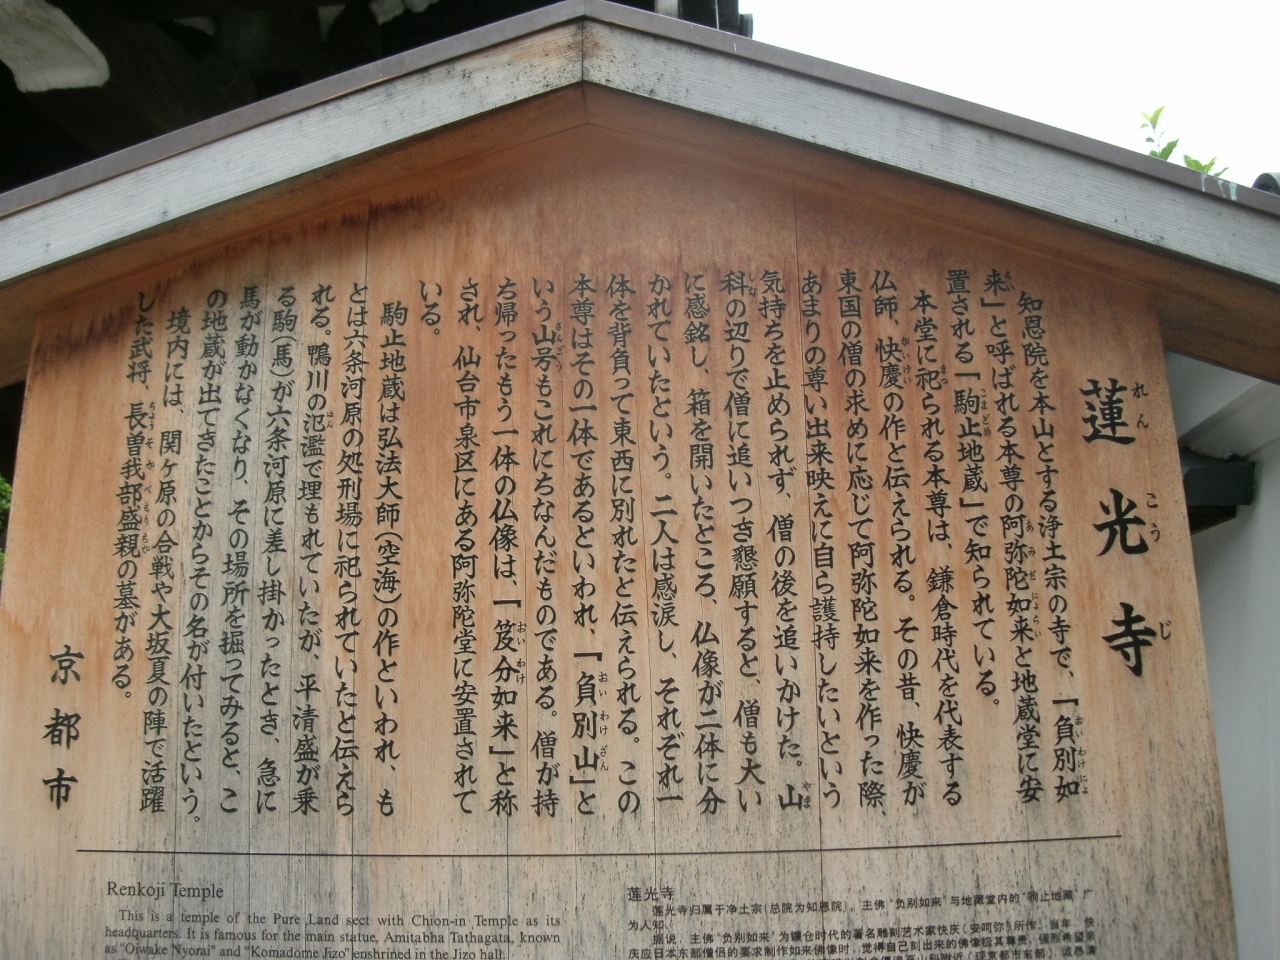 蓮光寺
知恩院を本山とする浄土宗の寺で、「負別如
来」と呼ばれる本尊の阿弥陀如来と地蔵堂に安
置される「駒止地蔵」で知られている。
本堂に祀られる本尊は、鎌倉時代を代表する
仏師、快慶の作と伝えられる。その昔、快慶が
東国の僧の求めに応じて阿弥陀如来を作った際、
あまりの尊い出来映えに自ら護持したいという
気持ちを止められず、僧の後を追いかけた。山
科の辺りで僧に追いつき懇願すると、僧も大い
に感銘し、箱を開いたところ、仏像が二体に分
かれていたという。二人は感涙し、それぞれ一
体を背負って東西に別れたと伝えられる。この
本尊はその一体であるといわれ、「負別山」と
いう山号もこれにちなんだものである。僧が持
ち帰ったもう一体の仏像は、「笈分如来」と称
され、仙台市泉区にある阿弥陀堂に安置されて
いる。
駒止地蔵は弘法大師(空海)の作といわれ、も
とは六条河原の処刑場に祀られていたと伝えら
れる。鴨川の氾濫で埋もれていたが、平清盛が乗
る駒(馬)が六条河原に差し掛かったとき、急に
馬が動かなくなり、その場所を掘ってみると、こ
の地蔵が出てきたことからその名が付いたという。
境内には、関ヶ原の合戦や大坂夏の陣で活躍
した武将、長曽我部盛親の墓がある。
京都市
Renkoji Temple
This is a temple of the Pure Land sect with Chion-in Temple as its
headquarters. It is famous for the main statue, Amitabha Tathagata, known
as "Oiwake Nyorai" and "Komadome Jizo" enshrined in the Jizo hall.
莲光寺
莲光寺归属于净土宗(总院为知恩院)。主佛"负别如来"与地藏堂内的"驹止地藏"广
为人知。
据说,主佛"负别如来"为镰仓时代的著名雕刻艺术家快庆(安呵弥)所作。当年,快
庆应日本东部僧侣的要求制作如来佛像时,觉得自己刻出来的佛像极其尊贵,强烈希望亲